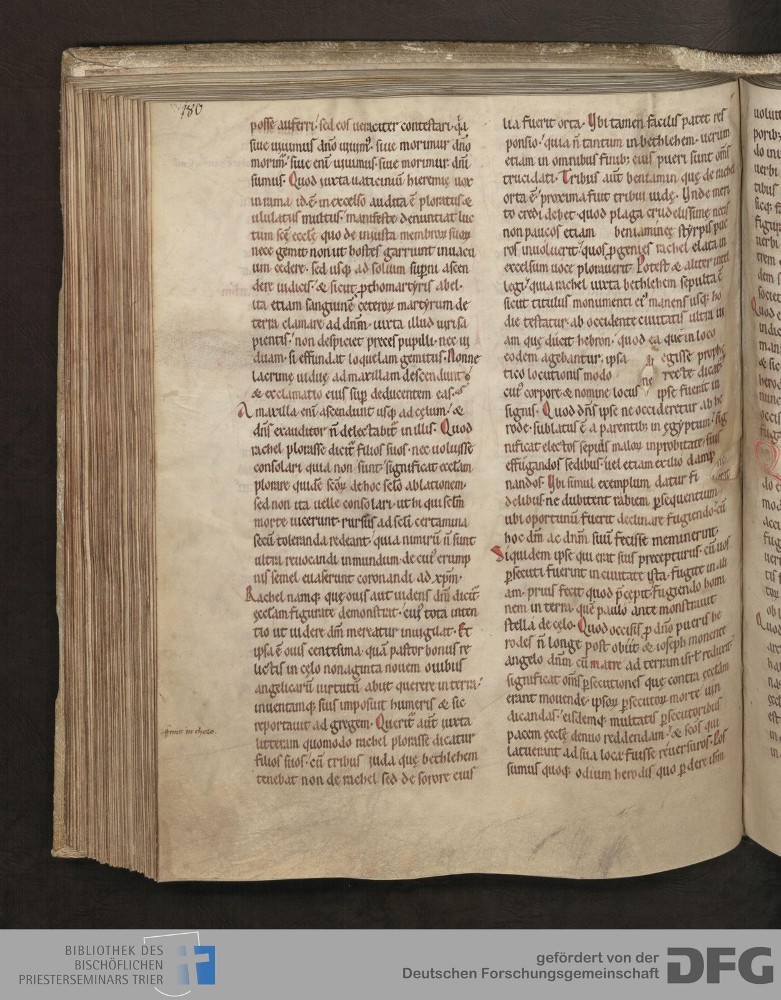 180
posse auferri. sed eos ueraciter contestari. qa
siue uiuimus dno uiuim9. siue morimur dno
morim. siue eni uiuimus. siue morimur dni
sumus. Quod iuxta uaticiniu hieremię uox
in rama id e in excelso audita e ploratus &
ululatus multus. manifeste denuntiat luc
tum scę ecclę quo de iniusta membror suor
nece gemit non ut hostes garriunt in uacu
um cedere. sed usq ad solium supni ascen
dere iudicis. & sicut pthomartyris abel.
ita etiam sanguine ceteror martyrum de
terra clamare ad dnm. iuxta illud uiri sa
pientis. non despiciet preces pupilli. nec ui
duam. si effundat loquelam gemitus. Nonne
lacrimę uiduę ad maxillam descendunt
& exclamatio eius sup deducentem eas.
A maxilla eni ascendunt usq ad cęlum. &
dns exauditor n delectabit in illis. Quod
rachel plorasse dicit filios suos. nec uoluisse
consolari quia non sunt. significat ecclam
plorare quide scor de hoc sclo ablationem.
sed non ita uelle consolari. ut hi qui sclm
morte uicerunt. rursus ad scli certamina
secu toleranda redeant. quia nimiru n sunt
ultra reuocandi in mundum. de cui9 erump
nis semel euaserunt coronandi ad xpm.
Rachel namq quę ouis aut uidens dm dicit
ęcclam figurate demonstrat. cui9 tota inten
tio ut uidere dm mereatur inuigilat. Et
ipsa e ouis centesima. qua pastor bonus re
lictis in cęlo nonaginta nouem ouibus
angelicaru uirtutu abiit querere in terra.
inuentamq suis imposuit humeris & sic
reportauit ad gregem. Querit aut iuxta
litteram quomodo rachel plorasse dicatur
filios suos. cu tribus iuda quę bethlehem
tenebat non de rachel sed de sorore eius
lia fuerit orta. Ybi tamen facilis patet res
ponsio. quia n tantum in bethlehem. uerum
etiam in omnibus finib; eius pueri sunt oms
trucidati. Tribus aut beniamin quę de rachel
orta e. proxima fuit tribui iudę. Ynde meri
to credi debet quod plaga crudelissimę necis
non paucos etiam beniaminęę styrpis pue
ros inuoluerit. quos pgenies rachel elata in
excelsum uoce plorauerit. Potest & aliter intel
legi. quia rachel iuxta bethlehem sepulta e
sicut titulus monumenti ei9 manens usq; ho
die testatur. ab occidente ciuitatis ultra ui
am quę ducit hebron. quod ea quę in loco
eodem agebantur. ipsa egisse prophe
tico locutionis modo recte dicat
cui9 corpore & nomine locus ipse fuerit in
signis. Quod dns ipse ne occideretur ab he
rode. sublatus e a parentib; in ęgyptum. sig
nificat electos sepius malor inprobitate suis
effugandos sedibus. uel etiam exilio damp
nandos. Ybi simul exemplum datur fi
delibus ne dubitent rabiem psequentium
ubi oportunu fuerit declinare fugiendo. cu
hoc dm ac dnm suu fecisse meminerint.
Siquidem ipse qui erat suis precepturus. cu uos
psecuti fuerint in ciuitate ista. fugite in ali
am. prius fecit quod pcepit. fugiendo homi
nem in terra. que paulo ante monstrauit
stella de cęlo. Quod occisis p dno pueris he
rodes n longe post obiit. & ioseph monente
angelo dnm cu matre ad terram isrl reducit.
significat oms psecutiones quę contra ęcclam
erant mouendę. ipsor psecutor morte uin
dicandas. eisdemq; multatis psecutoribus
pacem ęcclę denuo reddendam. & scos qui
latuerant ad sua loca fuisse reuersuros. Pos
sumus quoq; odium herodis quo pdere ihm
BIBLIOTHEK DES
BISCHÖFLICHEN
PRIESTERSEMINARS TRIER
gefördert von der
Deutschen Forschungsgemeinschaft
DFG